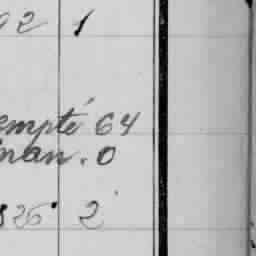 92 1
empté 64
man. 0
826 2